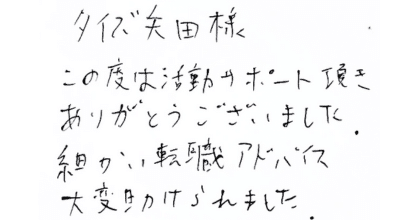 タイズ矢田様
この度は活動サポート頂き
ありがとうございました.
細かい転職アドバイス
大変助けられました.